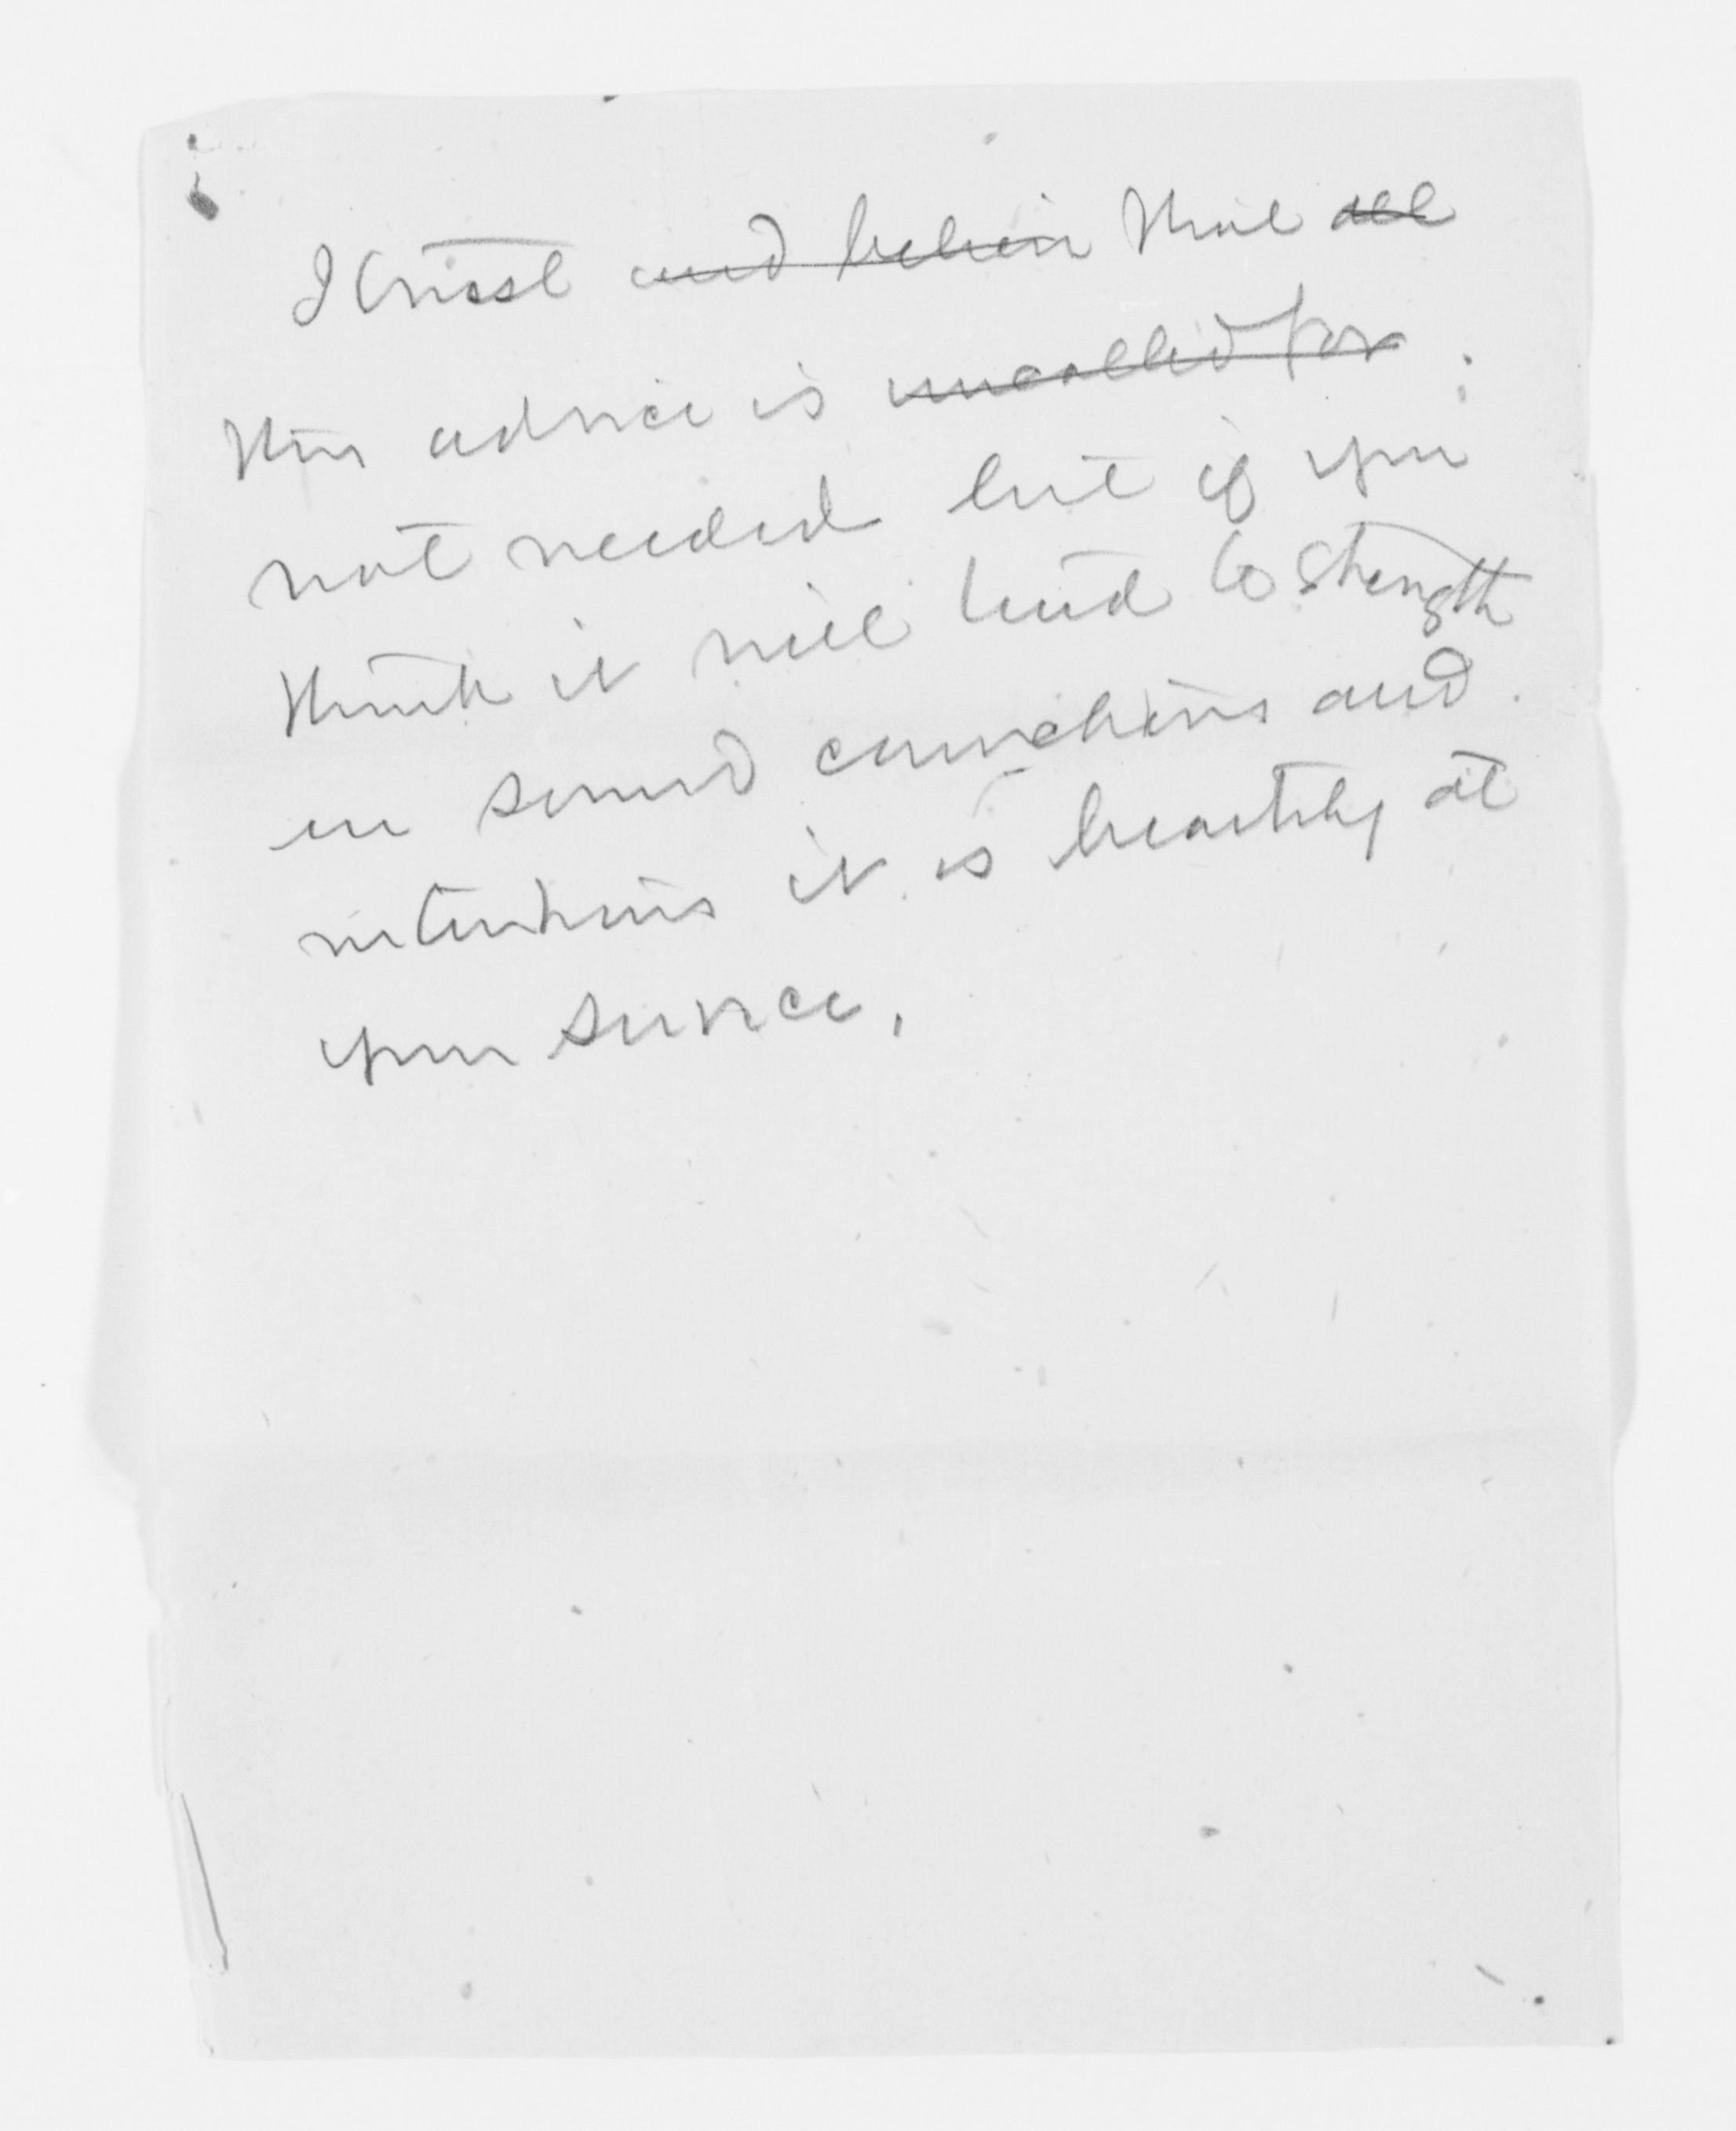 I trust and believe that all
this advice is uncalled for ;
not needed but if you
think it will tend to strength
en sound convictions and
intentions it is heartily at
your service.